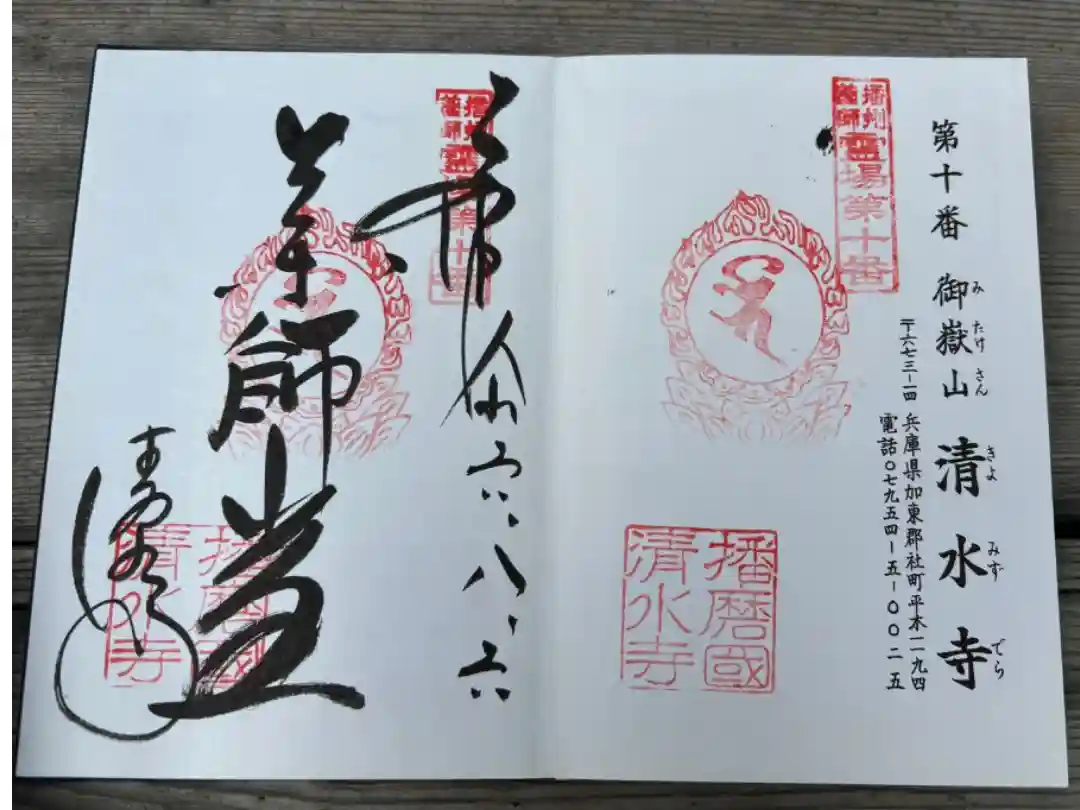 第十番 御嶽山 清水寺
み たけ さん きよ みず でら
〒六七三-一四 兵庫県加東郡社町平木一一九四
電話〇七九五四-五-〇〇二五
播州薬師霊場第十番
播磨國
清水寺
播州薬師霊場第十番
奉拝 令和六、八、六
薬師堂
清水寺
播磨國
清水寺